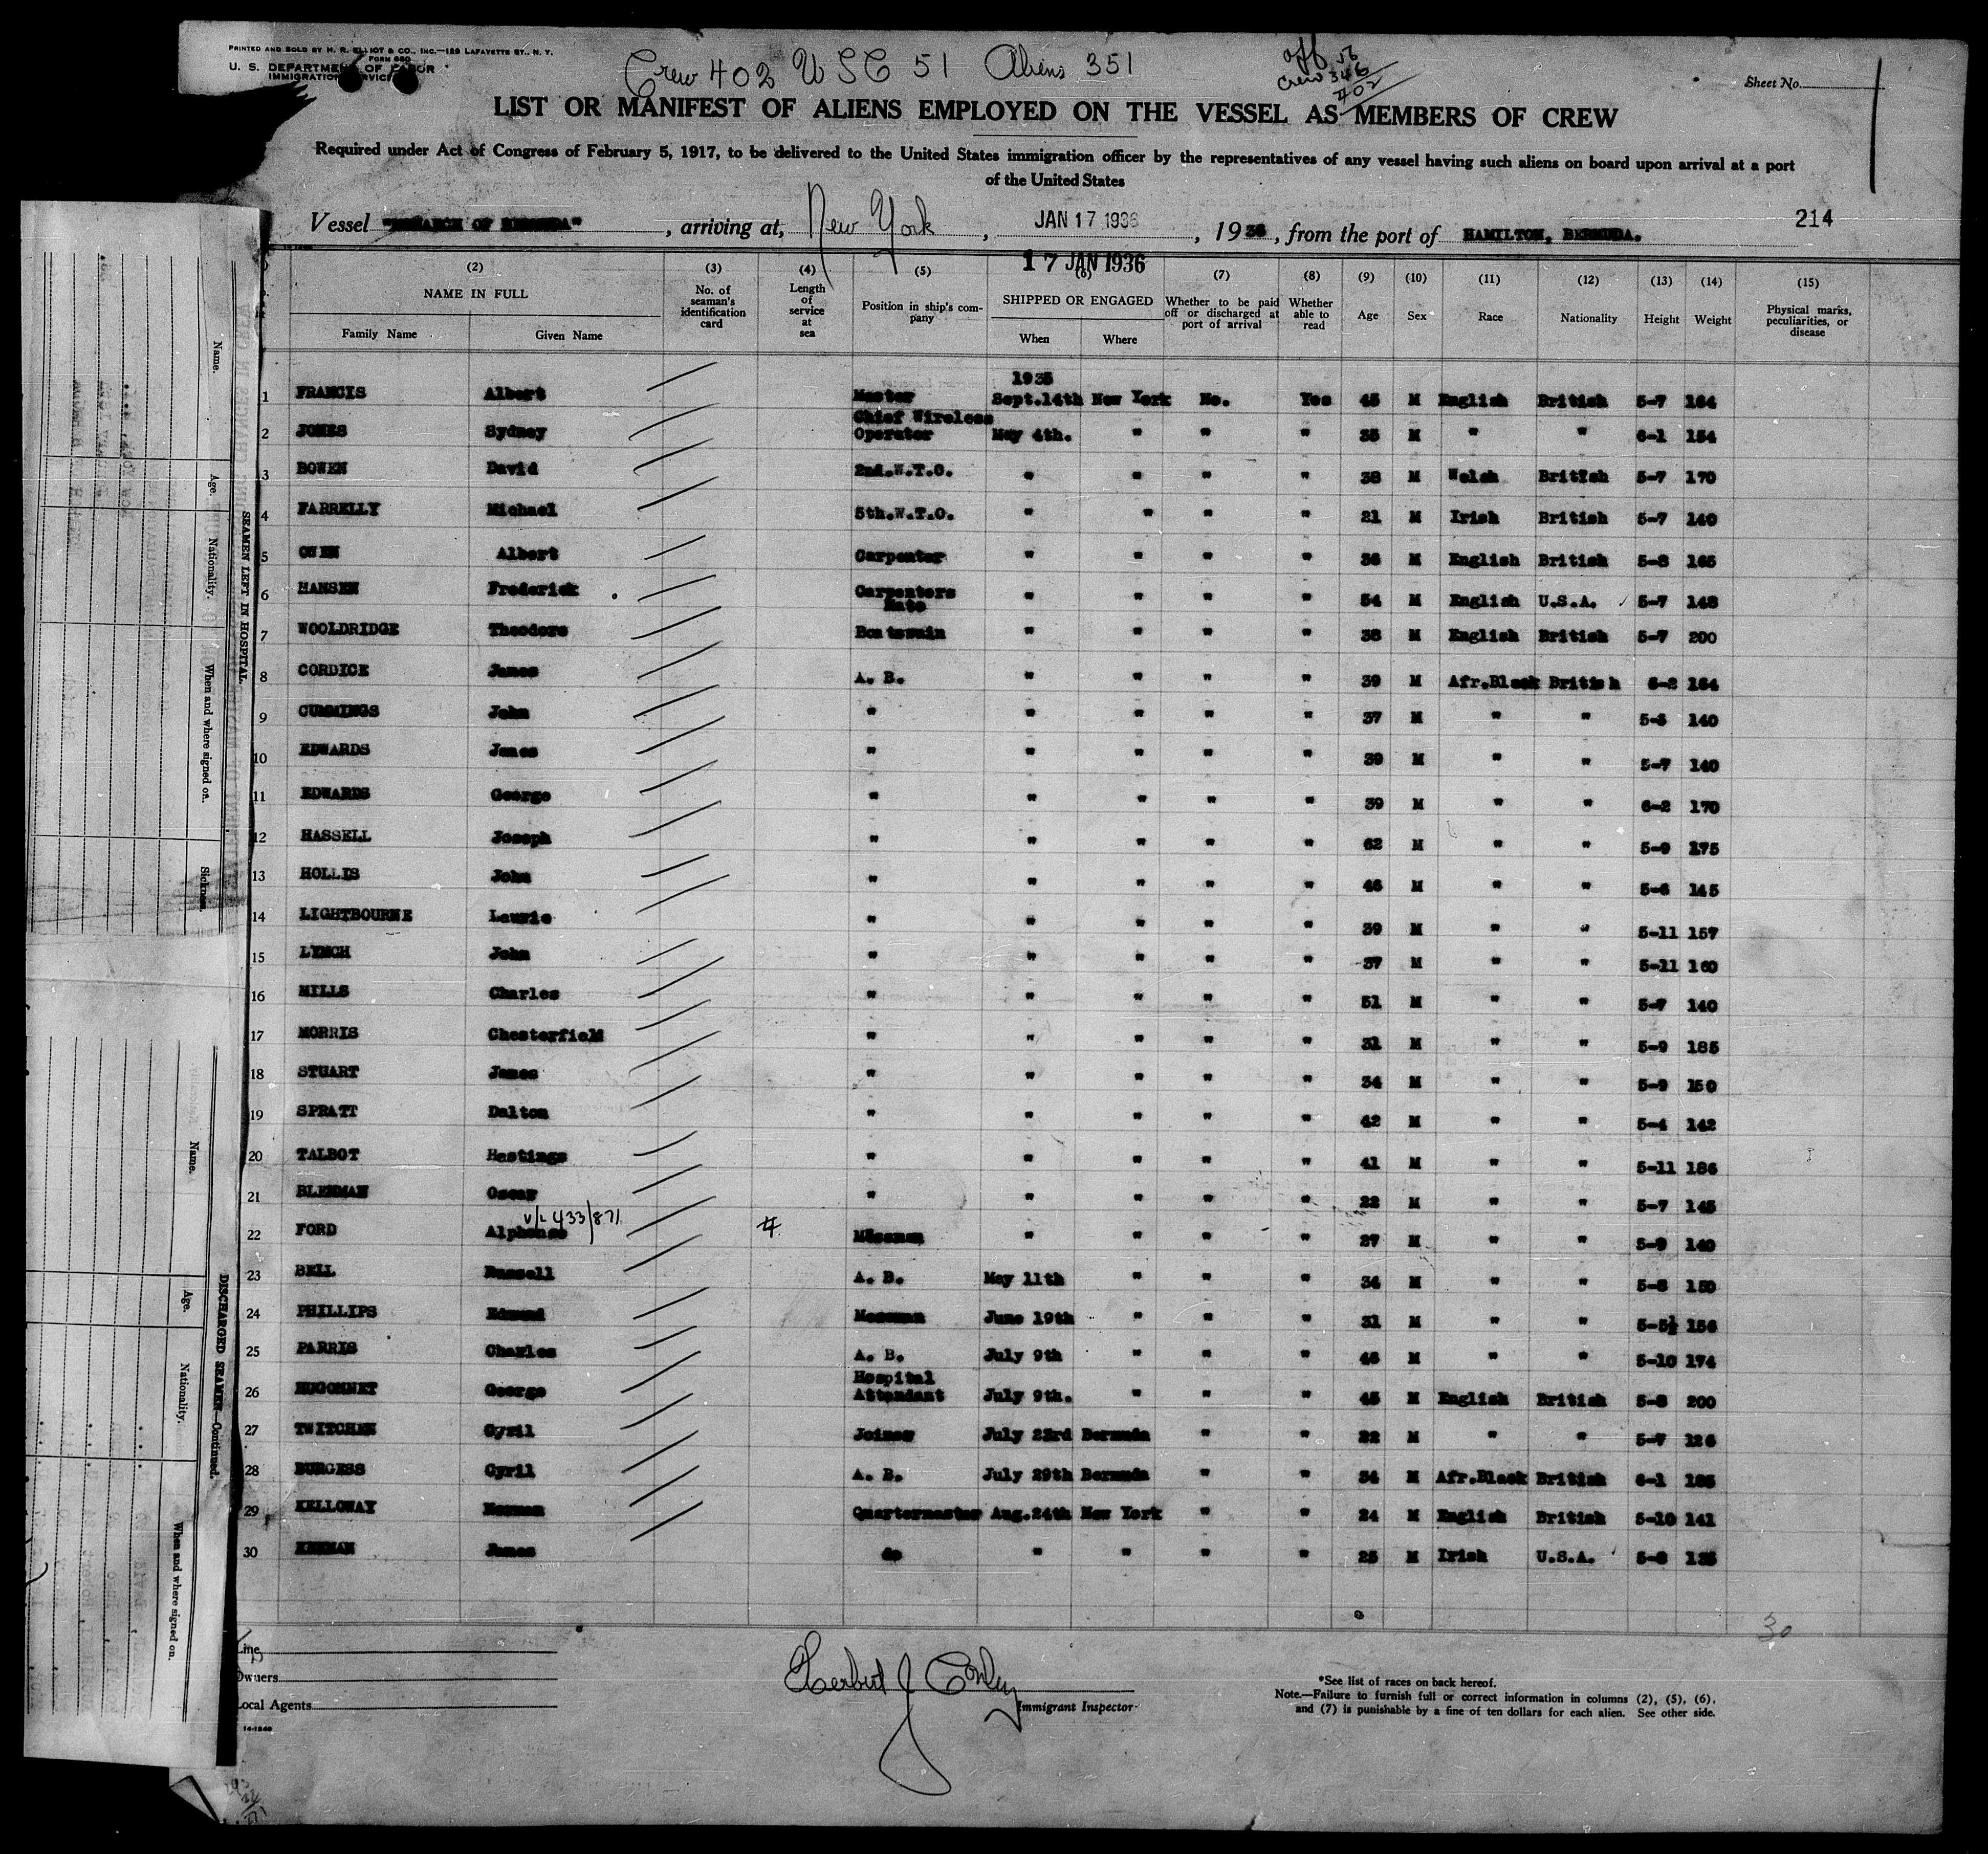 PRINTED AND SOLD BY H. R. ELLIOT & CO., INC.—129 LAFAYETTE ST., N. Y.
FORM 680
U. S. DEPARTMENT OF LABOR
IMMIGRATION SERVICE
Crew 402 USC 51 Aliens 351
Off 56
Crew 346
402
Sheet No.
LIST OR MANIFEST OF ALIENS EMPLOYED ON THE VESSEL AS MEMBERS OF CREW
Required under Act of Congress of February 5, 1917, to be delivered to the United States immigration officer by the representatives of any vessel having such aliens on board upon arrival at a port
of the United States
Vessel "MONARCH OF BERMUDA", arriving at, New York, JAN 17 1936, 1936, from the port of HAMILTON, BERMUDA.
214
17 JAN 1936
(2) (3) (4) (5) (6) (7) (8) (9) (10) (11) (12) (13) (14) (15)
NAME IN FULL
Family Name Given Name
No. of seaman's identification card
Length of service at sea
Position in ship's company
SHIPPED OR ENGAGED
When Where
Whether to be paid off or discharged at port of arrival
Whether able to read
Age Sex Race Nationality Height Weight
Physical marks, peculiarities, or disease
1935
1 FRANCIS Albert Master Sept.14th New York No. Yes 45 M English British 5-7 164
2 JONES Sydney Chief Wireless Operator May 4th. " " " 35 M " " 6-1 154
3 BOWEN David 2nd.W.T.O. " " " " 38 M Welsh British 5-7 170
4 FARRELLY Michael 5th.W.T.O. " " " " 21 M Irish British 5-7 140
5 OWEN Albert Carpenter " " " " 36 M English British 5-8 165
6 HANSEN Frederick Carpenters Mate " " " " 54 M English U.S.A. 5-7 148
7 WOOLDRIDGE Theodore Boatswain " " " " 38 M English British 5-7 200
8 CORDICE James A. B. " " " " 39 M Afr.Black British 6-2 164
9 CUMMINGS John " " " " " 37 M " " 5-6 140
10 EDWARDS James " " " " " 39 M " " 5-7 140
11 EDWARDS George " " " " " 39 M " " 6-2 170
12 HASSELL Joseph " " " " " 62 M " " 5-9 175
13 HOLLIS John " " " " " 46 M " " 5-6 145
14 LIGHTBOURNE Laurie " " " " " 39 M " " 5-11 157
15 LYNCH John " " " " " 37 M " " 5-11 160
16 MILLS Charles " " " " " 51 M " " 5-7 140
17 MORRIS Chesterfield " " " " " 31 M " " 5-9 185
18 STUART James " " " " " 34 M " " 5-9 150
19 SPRATT Dalton " " " " " 42 M " " 5-4 142
20 TALBOT Hastings " " " " " 41 M " " 5-11 186
21 BLENMAN Oscar " " " " " 22 M " " 5-7 145
V/L 433/871
22 FORD Alphonso Messman " " " " 27 M " " 5-9 140
23 BELL Russell A. B. May 11th " " " 34 M " " 5-8 150
24 PHILLIPS Edmund Messman June 19th " " " 31 M " " 5-5½ 156
25 PARRIS Charles A. B. July 9th " " " 46 M " " 5-10 174
26 HUGONNET George Hospital Attendant July 9th. " " " 45 M English British 5-8 200
27 TWITCHEN Cyril Joiner July 23rd Bermuda " " 22 M " " 5-7 126
28 BURGESS Cyril A. B. July 29th Bermuda " " 34 M Afr.Black British 6-1 185
29 KELLOWAY Norman Quartermaster Aug.24th New York " " 24 M English British 5-10 141
30 James do " " " " 25 M Irish U.S.A. 5-8 135
30
Line
Owners
Local Agents
14-1240
Herbert J Conley
Immigrant Inspector
*See list of races on back hereof.
Note.—Failure to furnish full or correct information in columns (2), (5), (6),
and (7) is punishable by a fine of ten dollars for each alien. See other side.
SEAMEN LEFT IN HOSPITAL.
Name.
Age.
Nationality.
When and where signed on.
Sickness.
DISCHARGED SEAMEN—Continued.
Name.
Age.
Nationality.
When and where signed on.